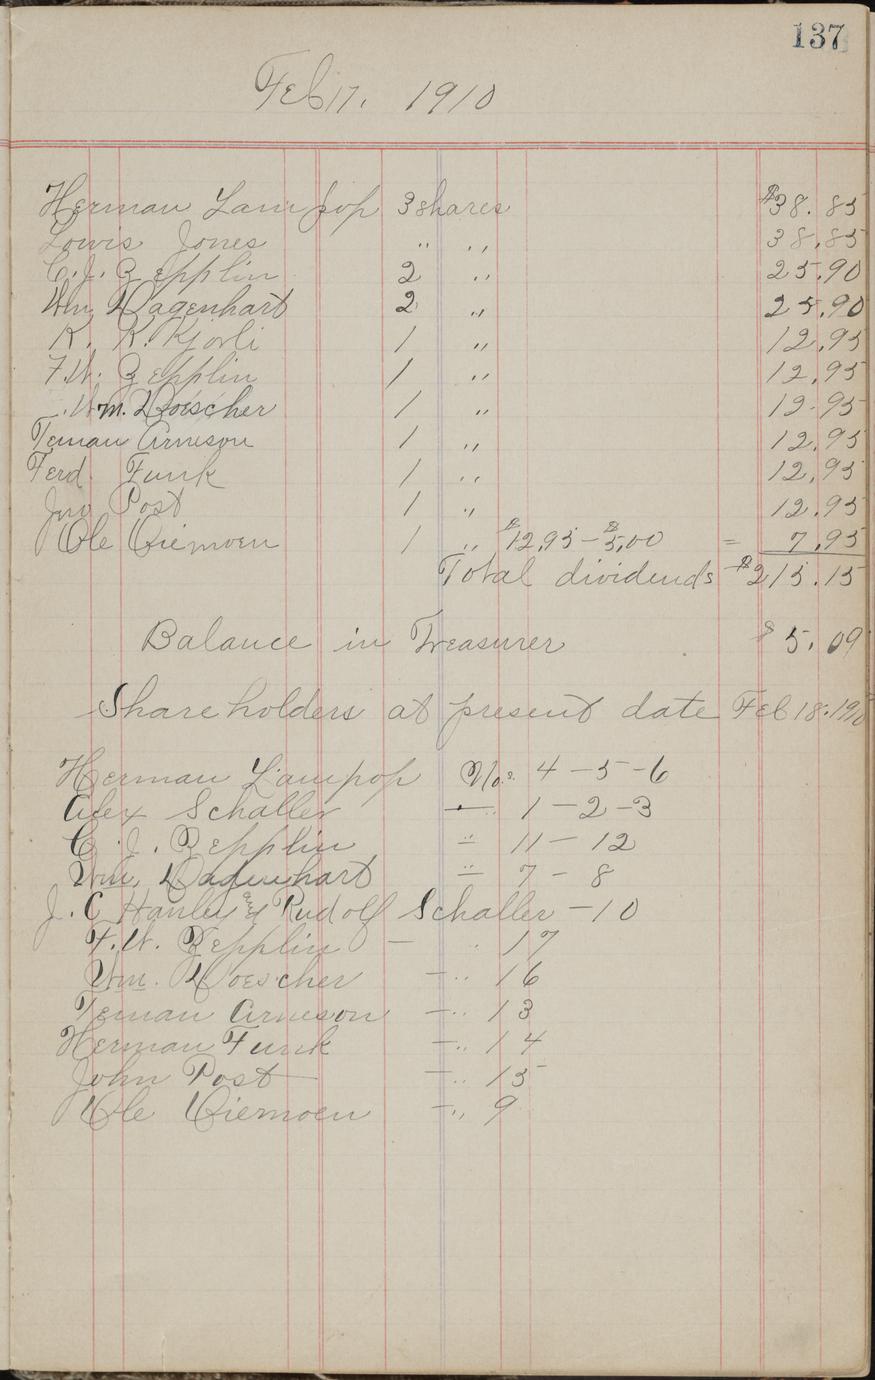 137
Feb 17, 1910
Herman Lampop 3 shares $38.85
Lowis Jones " " 38.85
C. J. Zepplin 2 " 25.90
Wm Dagenhart 2 " 25.90
K. K. Kjorli 1 " 12.95
F. W. Zepplin 1 " 12.95
Wm. Doescher 1 " 12.95
Teman Arneson 1 " 12.95
Ferd Funk 1 " 12.95
Jno Post 1 " 12.95
Ole Oiemoen 1 " $12.95 – $5.00 = 7.95
Total dividends $215.15
Balance in Treasurer $5.09
Shareholders at present date Feb 18. 1910
Herman Lampop No.s. 4 – 5 – 6
Alex Schaller — " 1 – 2 – 3
C. J. Zepplin – " 11 – 12
Wm. Dagenhart – " 7 – 8
J. C Hanley and Rudolf Schaller – 10
F. W. Zepplin – " 17
Wm. Doescher – " 16
Teman Arneson – " 13
Herman Funk – " 14
John Post – " 15
Ole Oiemoen – " 9